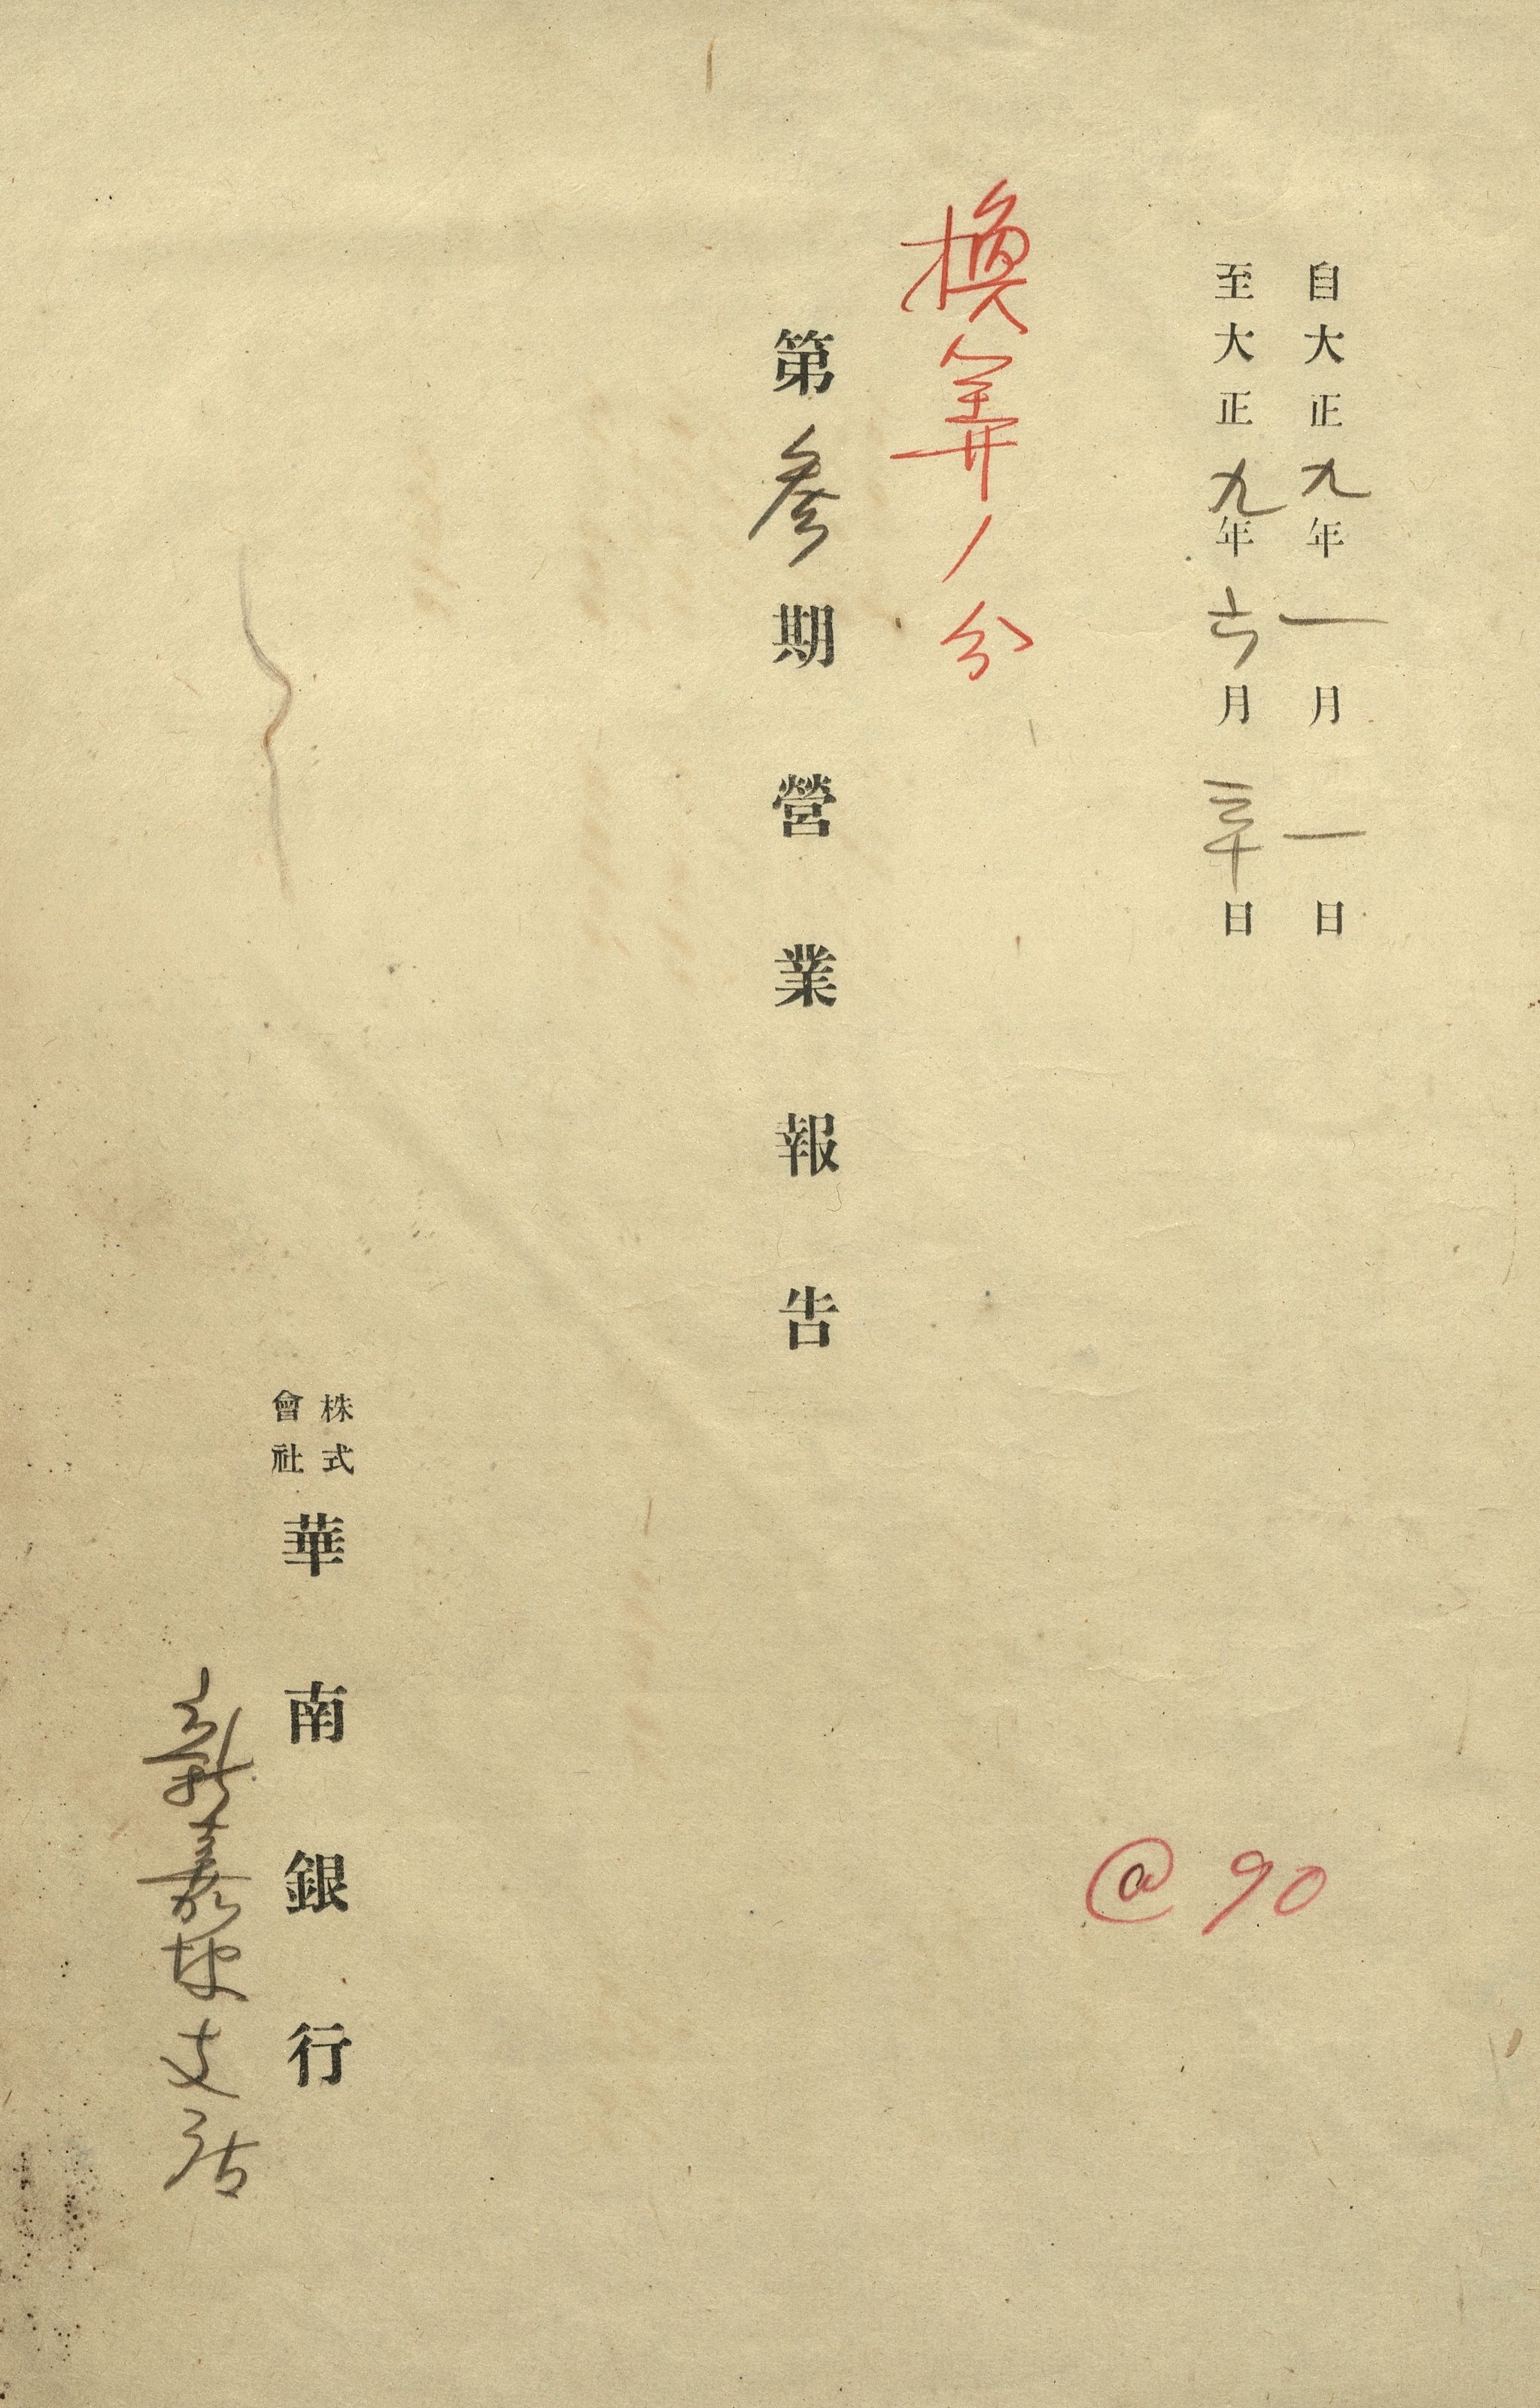 自大正九年一月一日
至大正九年六月三十日
換算ノ分
第参期營業報告
株式
會社
華南銀行
新嘉坡支店
@ 90